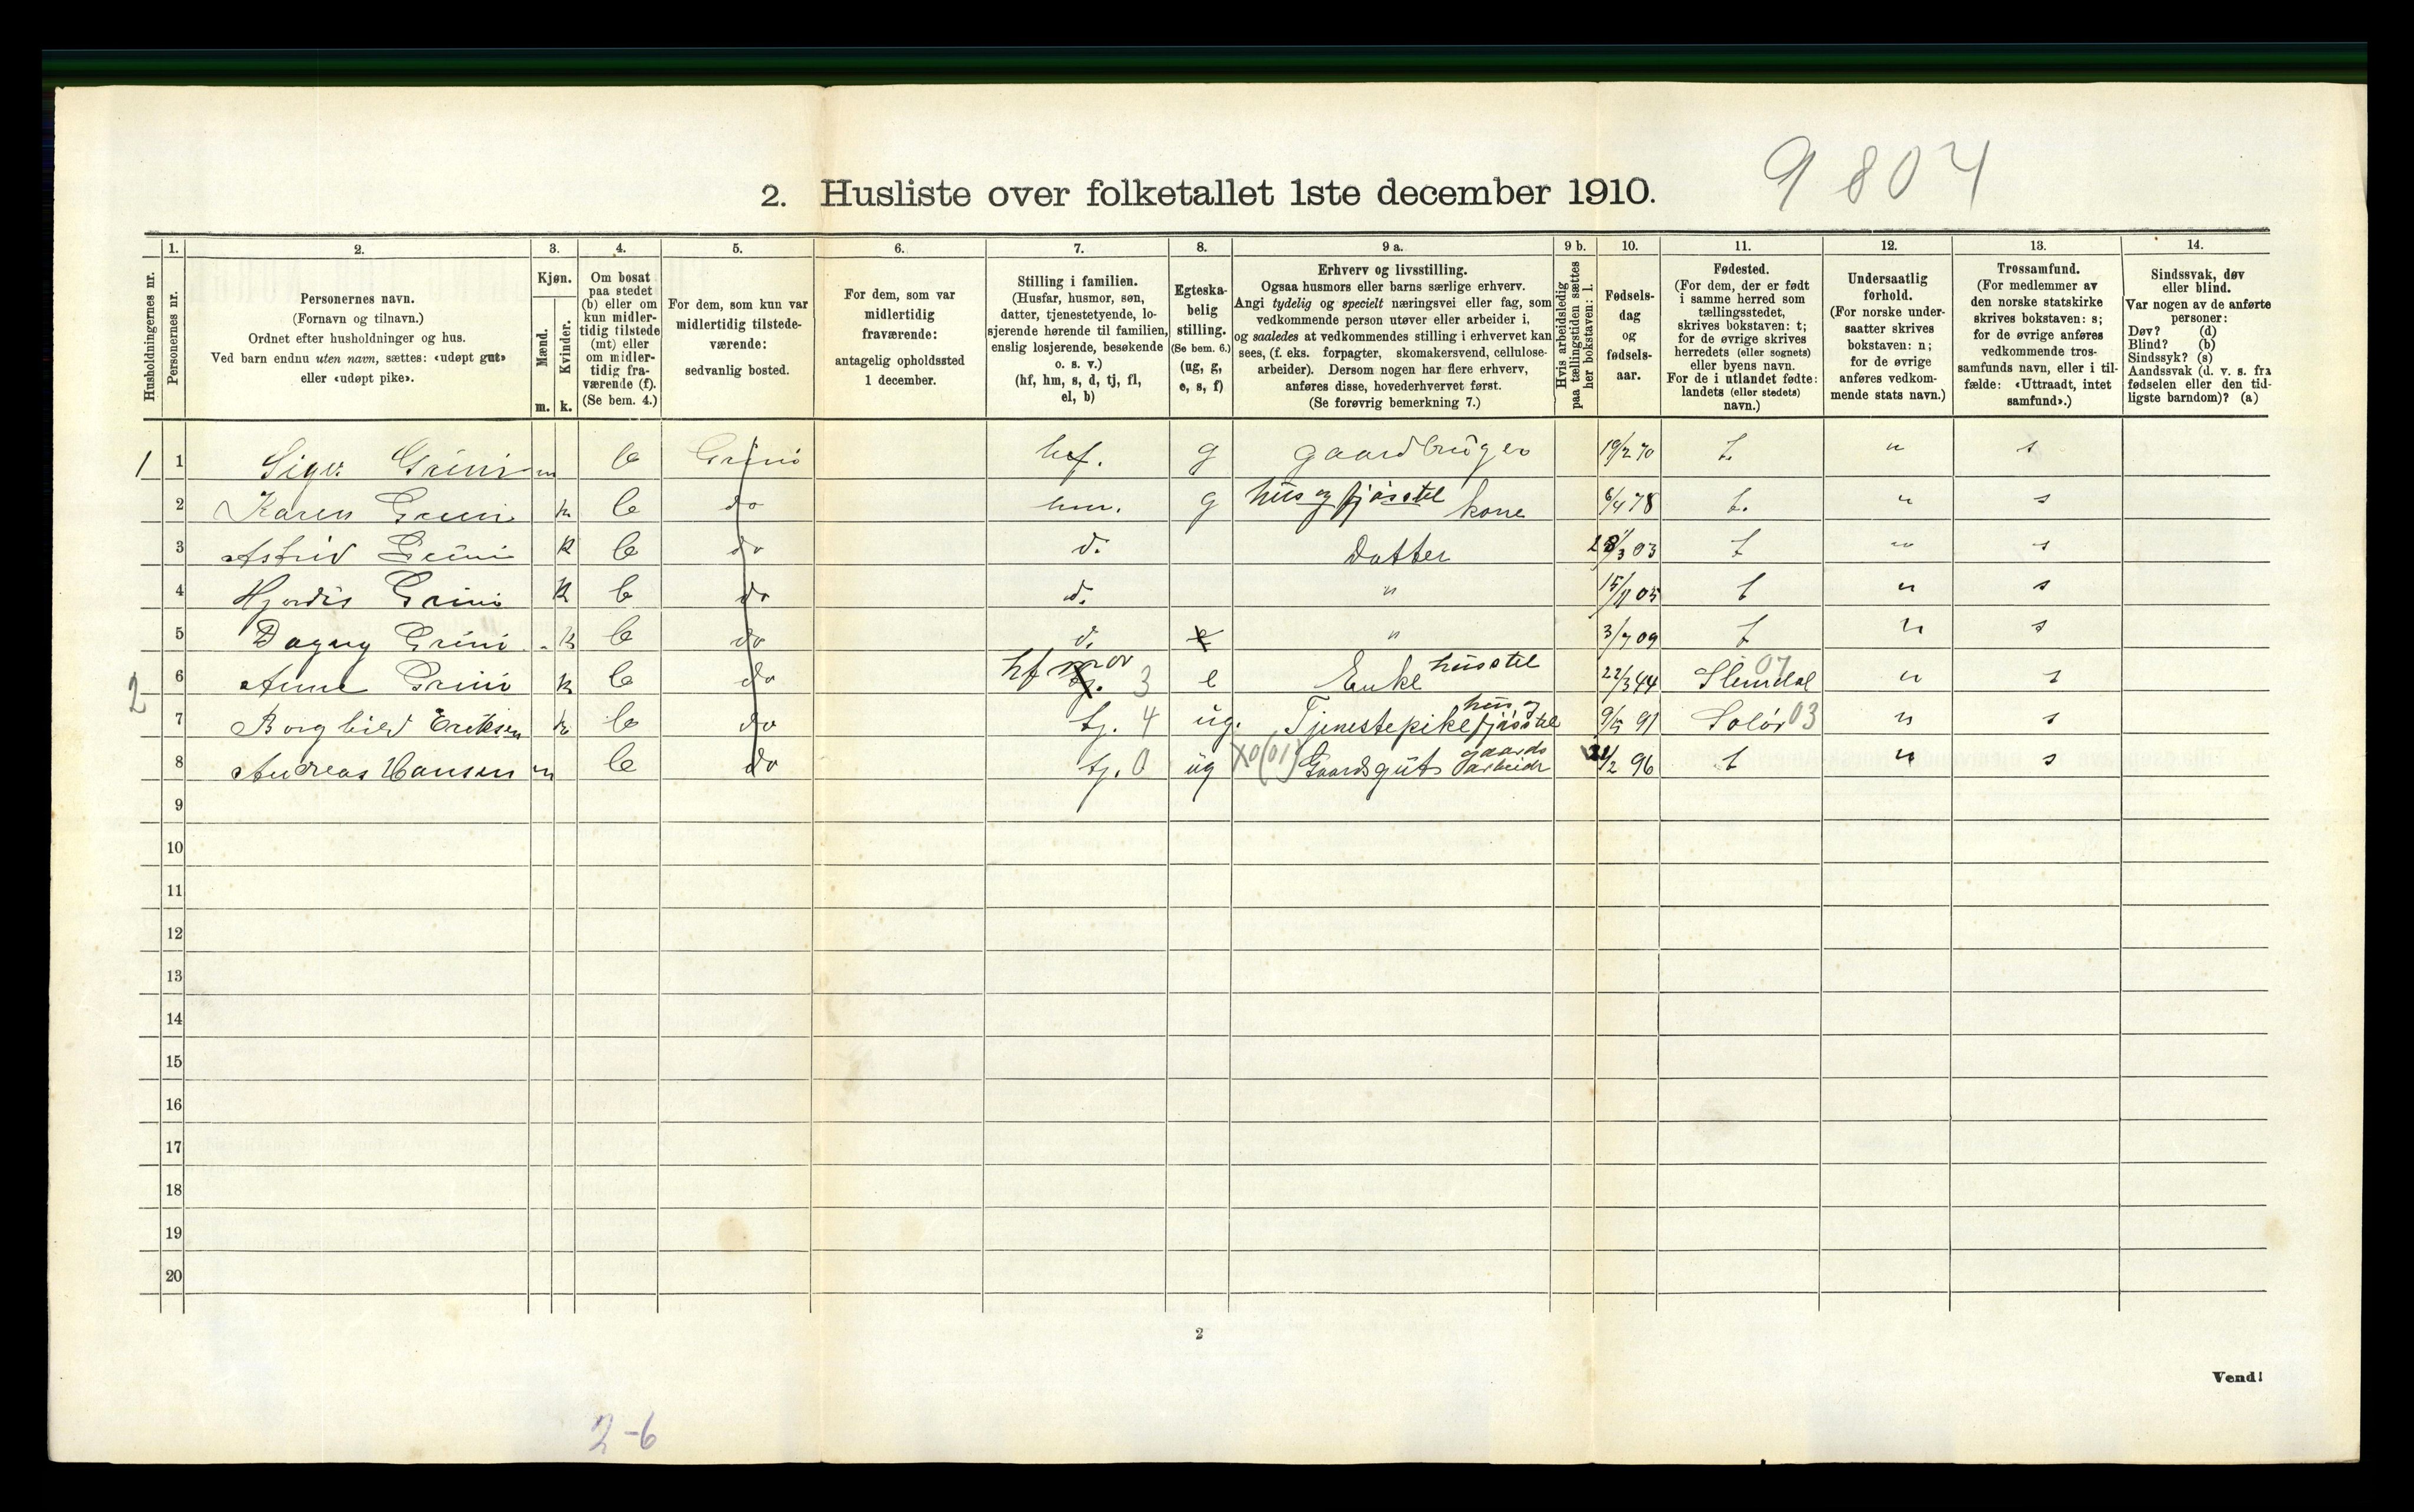 9804
2. Husliste over folketallet 1ste december 1910.
Husholdningernes nr.
1. Personernes nr.
2. Personernes navn.
(Fornavn og tilnavn.)
Ordnet efter husholdninger og hus.
Ved barn endnu uten navn, sættes: «udøpt gut»
eller «udøpt pike».
3. Kjøn.
Mænd. m.
Kvinder. k.
4. Om bosat
paa stedet
(b) eller om
kun midler-
tidig tilstede
(mt) eller
om midler-
tidig fra-
værende (f).
(Se bem. 4.)
5. For dem, som kun var
midlertidig tilstede-
værende:
sedvanlig bosted.
6. For dem, som var
midlertidig
fraværende:
antagelig opholdssted
1 december.
7. Stilling i familien.
(Husfar, husmor, søn,
datter, tjenestetyende, lo-
sjerende hørende til familien,
enslig losjerende, besøkende
o. s. v.)
(hf, hm, s, d, tj, fl,
el, b)
8. Egteska-
belig
stilling.
(Se bem. 6.)
(ug, g,
e, s, f)
9 a. Erhverv og livsstilling.
Ogsaa husmors eller barns særlige erhverv.
Angi tydelig og specielt næringsvei eller fag, som
vedkommende person utøver eller arbeider i,
og saaledes at vedkommendes stilling i erhvervet kan
sees, (f. eks. forpagter, skomakersvend, cellulose-
arbeider). Dersom nogen har flere erhverv,
anføres disse, hovederhvervet først.
(Se forøvrig bemerkning 7.)
9 b. Hvis arbeidsledig
paa tællingstiden sættes
her bokstaven: l.
10. Fødsels-
dag
og
fødsels-
aar.
11. Fødested.
(For dem, der er født
i samme herred som
tællingsstedet,
skrives bokstaven: t;
for de øvrige skrives
herredets (eller sognets)
eller byens navn.
For de i utlandet fødte:
landets (eller stedets)
navn.)
12. Undersaatlig
forhold.
(For norske under-
saatter skrives
bokstaven: n;
for de øvrige
anføres vedkom-
mende stats navn.)
13. Trossamfund.
(For medlemmer av
den norske statskirke
skrives bokstaven: s;
for de øvrige anføres
vedkommende tros-
samfunds navn, eller i til-
fælde: «Uttraadt, intet
samfund».)
14. Sindssvak, døv
eller blind.
Var nogen av de anførte
personer:
Døv? (d)
Blind? (b)
Sindssyk? (s)
Aandssvak (d. v. s. fra
fødselen eller den tid-
ligste barndom)? (a)
1 1 Grini m b Grini hf. g gaardbruger 19/2 70 t. n s
2 Karen Grini k b do hm. g hus og fjøsstel kone 6/4 78 t. n s
3 Astrid Grini k b do d. Datter /3 03 t n s
4 Hjørdis Grini k b do d. " 15/11 05 t n s
5 Dagny Grini k b do d. " 3/7 09 t n s
2 6 Anne Grini k b do hf 3 e Enke husstel 22/3 44 07 n s
7 Borghild Eriksen k b do tj. 4 ug. Tjenestepike hus og fjøsstel 9/5 91 Solør 03 n s
8 Andreas Hansen m b do tj. 0 ug X0(01) Gaardsgut gaardsarbeider /2 96 t n s
9
10
11
12
13
14
15
16
17
18
19
20
2
Vend!
2-6